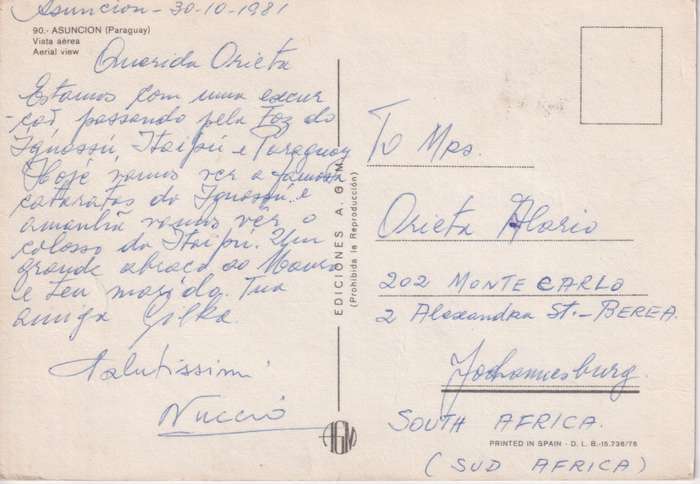 Asuncion - 30-10-1981
90.- ASUNCION (Paraguay)
Vista aérea
Aerial view
Querida Orieta
Estamos com uma excur
-çaõ, passando pela Foz do
Iguassú, Itaipú e Paraguay
Hoje vamos ver a famosa
cataratas do Iguassú, e
amanhã vamos ver o
colosso do Itaipu. Um
grande abraço ao Mauro
e seu marido. Tua
amiga Gilka.
Salutissimi
Nuccio
EDICIONES A. G. M.
(Prohibida la Reproducción)
AGM
To Mrs.
Orieta Alario
202 MONTE CARLO
2 Alexandra St.- BEREA.
Johannesburg.
SOUTH AFRICA.
PRINTED IN SPAIN - D. L. B.-15.736/76
(SUD AFRICA)